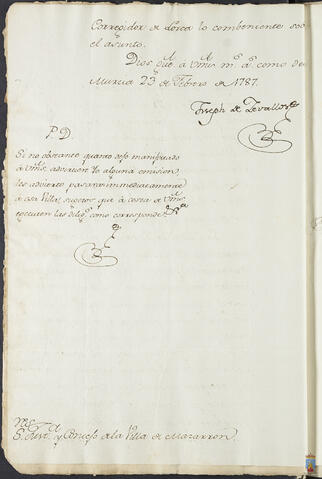 Corregidor de Lorca lo combeniente sobre
el asunto.
Dios gue. a Vms. ms. as. como deseo
Murcia 23 de Febrero de 1787.
Joseph de Zevallos
P.D.
Si no obstante quanto dejo manifestado
à Vms. advirtiere la alguna omision,
les advierto pasaran immediatamente
a esa Villa, sugetos que à costa de Vms.
executen las diligs. como corresponde
S. Just. y Concejo de la Villa de Mazarron.